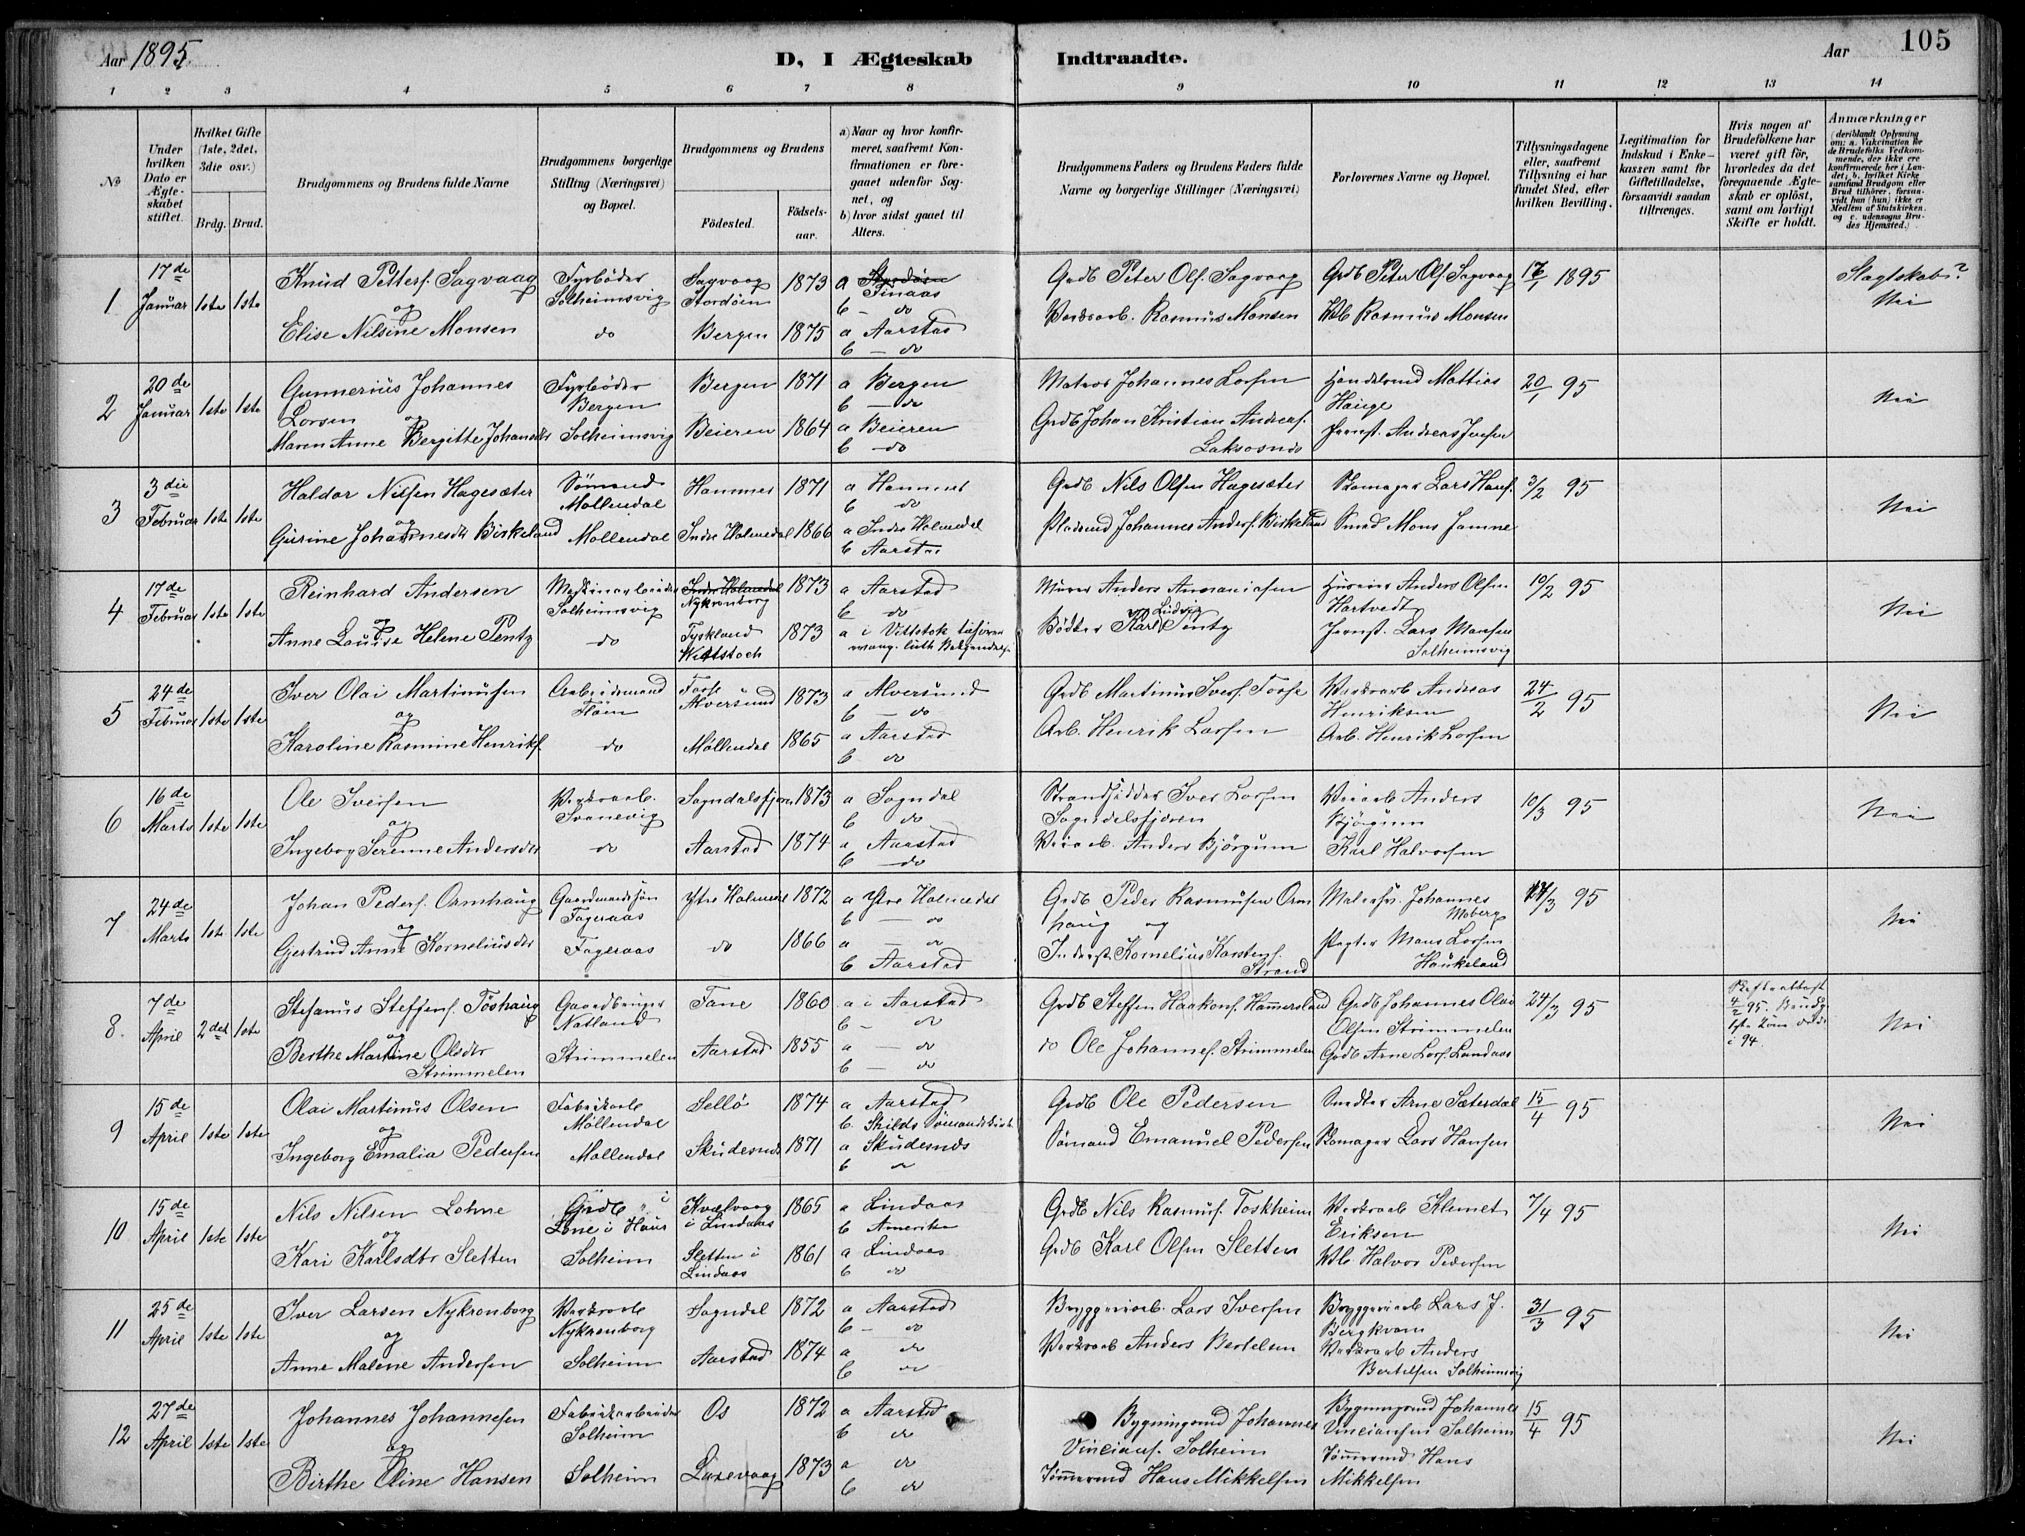 Aar 1895.
D, I Ægteskab Indtraadte.
Aar 105
1 2 3 4 5 6 7 8 9 10 11 12 13 14
No
Under hvilken Dato er Ægteskabet stiftet.
Hvilket Gifte (1ste, 2det, 3die osv.)
Brdg. Brud.
Brudgommens og Brudens fulde Navne
Brudgommens borgerlige Stilling (Næringsvei) og Bopæl.
Brudgommens og Brudens
Födested. Födsels-aar.
a) Naar og hvor konfirmeret, saafremt Konfirmationen er foregaaet udenfor Sognet, og
b) hvor sidst gaaet til Alters.
Brudgommens Faders og Brudens Faders fulde Navne og borgerlige Stillinger (Næringsvei)
Forlovernes Navne og Bopæl.
Tillysningsdagene eller, saafremt Tillysning ei har fundet Sted, efter hvilken Bevilling.
Legitimation for Indskud i Enkekassen samt for Giftetilladelse, forsaavidt saadan tiltrænges.
Hvis nogen af Brudefolkene har været gift för, hvorledes da det foregaaende Ægteskab er oplöst, samt om lovligt Skifte er holdt.
Anmærkninger (deriblandt Oplysning om: a. Vakcination for de Brudefolks Vedkommende, der ikke ere konfirmerede her i Landet; b. hvilket Kirkesamfund Brudgom eller Brud tilhörer, forsaavidt han (hun) ikke er Medlem af Statskirken, og c. udensogns Brudes Hjemsted.)
1 17de Januar 1ste 1ste
Knud Petters. Sagvaag og
Elise Nilsine Monsen
Fyrböder Solheimsvig
do
Sagvaag Stordöen 1873
Bergen 1875
a Stordöen Finaas
b - do
a Aarstad
b - do
Grdb Peter Ols. Sagvaag
Værksarb. Rasmus Monsen
Grdb Peter Ols. Sagvaag
Rasmus Monsen
1895
Slagtskab?
Nei
2 20de Januar 1ste 1ste
Gunnerius Johannes Larsen og
Maren Anne Bergitte Johansdtr
Fyrböder Bergen
Solheimsvig
Bergen 1871
Beieren 1864
a Bergen
b - do
a Beieren
b - do
Matros Johannes Larsen
Grdb Johan Kristian Andreas.
Handelsmd Mattias Hauge
Jernst. Andreas Iversen
20/1 95
Nei
3 3die Februar 1ste 1ste
Haldor Nilsen Hagesæter og
Gurine Johannesdtr Birkeland
Sömand Möllendal
Möllendal
Hammer 1871
Indre Holmedal 1866
a Hammer
b do
a Indre Holmedal
b Aarstad
Grdb Nils Olsen Hagesæter
Pladsmd Johannes Anders. Birkeland
Skomager Lars Hans.
Smed Mons Jamne
3/2 95
Nei
4 17de Februar 1ste 1ste
Reinhard Andersen og
Anne Louise Helene Pentz
Maskinarbeider Solheimsvig
do
Indre Holmedal Nykronborg 1873
Tyskland Wittstoch 1873
a Aarstad
b do
a i Vittstok
Murer Anders Annaniasen
Bödker Karl Ludvig Pentz
Huseier Anders Olsen Hartvedt
Jernst. Lars Monsen Solheimsvig
10/2 95
Nei
5 24de Februar 1ste 1ste
Iver Olai Martinusen og
Karoline Rasmine Henriks.
Arbeidsmand Flöen
do
Fosse Alversund 1873
Möllendal 1865
a Alversund
b - do
a Aarstad
b do
Grdb Martinus Ivers. Fosse
Arb. Henrik Larsen
Værksarb Andreas Henriksen
Arb. Henrik Larsen
24/2 95
Nei
6 16de Marts 1ste 1ste
Ole Iversen og
Ingeborg Serenne Andersdtr
Værksarb. Svanevig
do
Sogndalsfjæren 1873
Aarstad 1874
a Sogndal
b do
a Aarstad
b - do
Strandsidder Iver Larsen Sogndalsfjæren
Veiarb. Anders Björgum
Veiarb Anders Björgum
Karl Halvorsen
10/3 95
Nei
7 24de Marts 1ste 1ste
Johan Peders. Ormhaug og
Gjertrud Anne Korneliusdtr
Gaardmandssön Fageraas
Fageraas
Ytre Holmedal 1872
do 1866
a Ytre Holmedal
b - do
a - do
b Aarstad
Grdb Peder Rasmusen Ormhaug og
Inderst Kornelius Karstens. Strand
Malersv. Johannes Moberg
Pagter Mons Larsen Haukeland
95
Nei
8. 7de April 2det 1ste
Stefanus Steffens. Töshaug og
Berthe Martine Olsdtr Strimmelen
Gaardbruger Natland
Strimmelen
Fane 1860
Aarstad 1855
a i Aarstad
b - do
a - do
b - do
Grdb Steffen Haakons. Hammersland
do Ole Johannes. Strimmelen
Grdb Johannes Olai Olsen Strimmelen
Grdb Arne Lars. Landaas
24/3 95
Skifteattest 4/2 95. Brudg. 1ste Kone döde i 94.
Nei
9 15de April 1ste 1ste
Olai Martinus Olsen og
Ingeborg Emalia Pedersen
Fabrikarb Möllendal
Möllendal
Sellö 1874
Skudesnes 1871
a Aarstad
b. Skilds Sömandskirke
a Skudesnes
b do
Grdb Ole Pedersen
Sömand Emanuel Pedersen
Arne Sæterdal
Skomager Lars Hansen
15/4 95
Nei
10 15de April 1ste 1ste
Nils Nilsen Lohne og
Kari Karlsdtr Sletten
Grdb i Lone i Haus
Solheim
Kvalvaag i Lindaas 1865
Sletten i Lindaas 1861
a Lindaas
b Amerika
a Lindaas
b do
Grdb Nils Rasmus. Foskheim
Grdb Karl Olsen Sletten
Værksarb Klemet Eriksen
Halvor Pedersen
7/4 95
Nei
11 25de April 1ste 1ste
Iver Larsen Nykronborg og
Anne Malene Andersen
Værksarb Nykronborg
Solheim
Sogndal 1872
Aarstad 1874
a Aarstad
b - do
a do
b do
Bryggeriarb. Lars Iversen
Værksarb Anders Bertelsen
Bryggeriarb Lars J. Bergkvam
Værksarb Anders Bertelsen Solheimsvig
31/3 95
Nei
12 27de April 1ste 1ste
Johannes Johannesen og
Birthe Oline Hansen
Fabrikarbeider Solheim
Solheim
Os 1872
Laxevaag 1873
a Aarstad
b do
a do
b do
Bygningsmd Johannes Vincians. Solheim
Tömmermd Hans Mikkelsen
Bygningsmd Johannes Vinciansen Solheim
Tömmermd Hans Mikkelsen
15/4 95
Nei